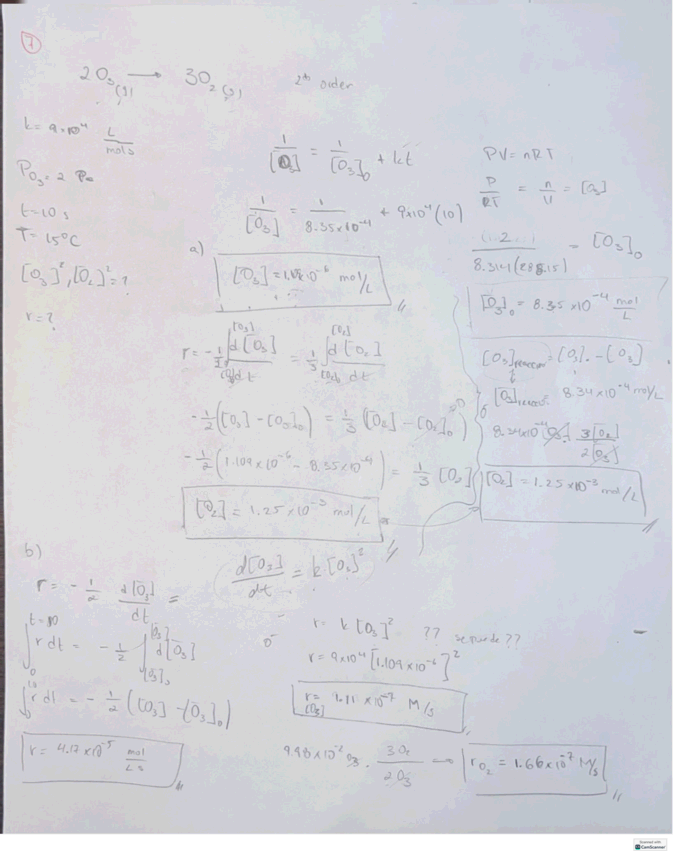 1
2O₃(g) → 3O₂(g)
2th order
k = 9×10⁴ L/mol s
P_O₃ = 2 Pa
t = 10 s
T = 15°C
[O₃]², [O₂]² = ?
r = ?
1/[O₃] = 1/[O₃]₀ + kt
1/[O₃] = 1/8.35×10⁻⁴ + 9×10⁴(10)
a)
mol/L
PV = nRT
P/RT = n/V = [O₃]
8.314(288.15) = [O₃]₀
[O₃]₀ = 8.35×10⁻⁴ mol/L
r = -1/2 ∫ d[O₃]/dt = 1/3 ∫ d[O₂]/dt
-1/2([O₃] - [O₃]₀) = 1/3([O₂] - [O₂]₀)
-1/2(1.109×10⁻⁶ - 8.35×10⁻⁴) = 1/3[O₂]
[O₂] = 1.25×10⁻³ mol/L
8.34×10⁻⁴ mol/L
8.34×10⁻⁴ [O₃] · 3[O₂]/2[O₃]
[O₂] = 1.25×10⁻³ mol/L
b)
r = -1/2 d[O₃]/dt =
d[O₃]/dt = k[O₃]²
t=10
∫ r dt = -1/2 ∫ d[O₃]
∫ r dt = -1/2([O₃] - [O₃]₀)
r = 4.17×10⁻⁵ mol/L s
r = k[O₃]² ?? se puede ??
r = 9×10⁴[1.109×10⁻⁶]²
r = 1.11×10⁻⁷ M/s
[O₃]
3O₂/2O₃ → r_O₂ = 1.66×10⁻⁷ M/s
Scanned with
CamScanner